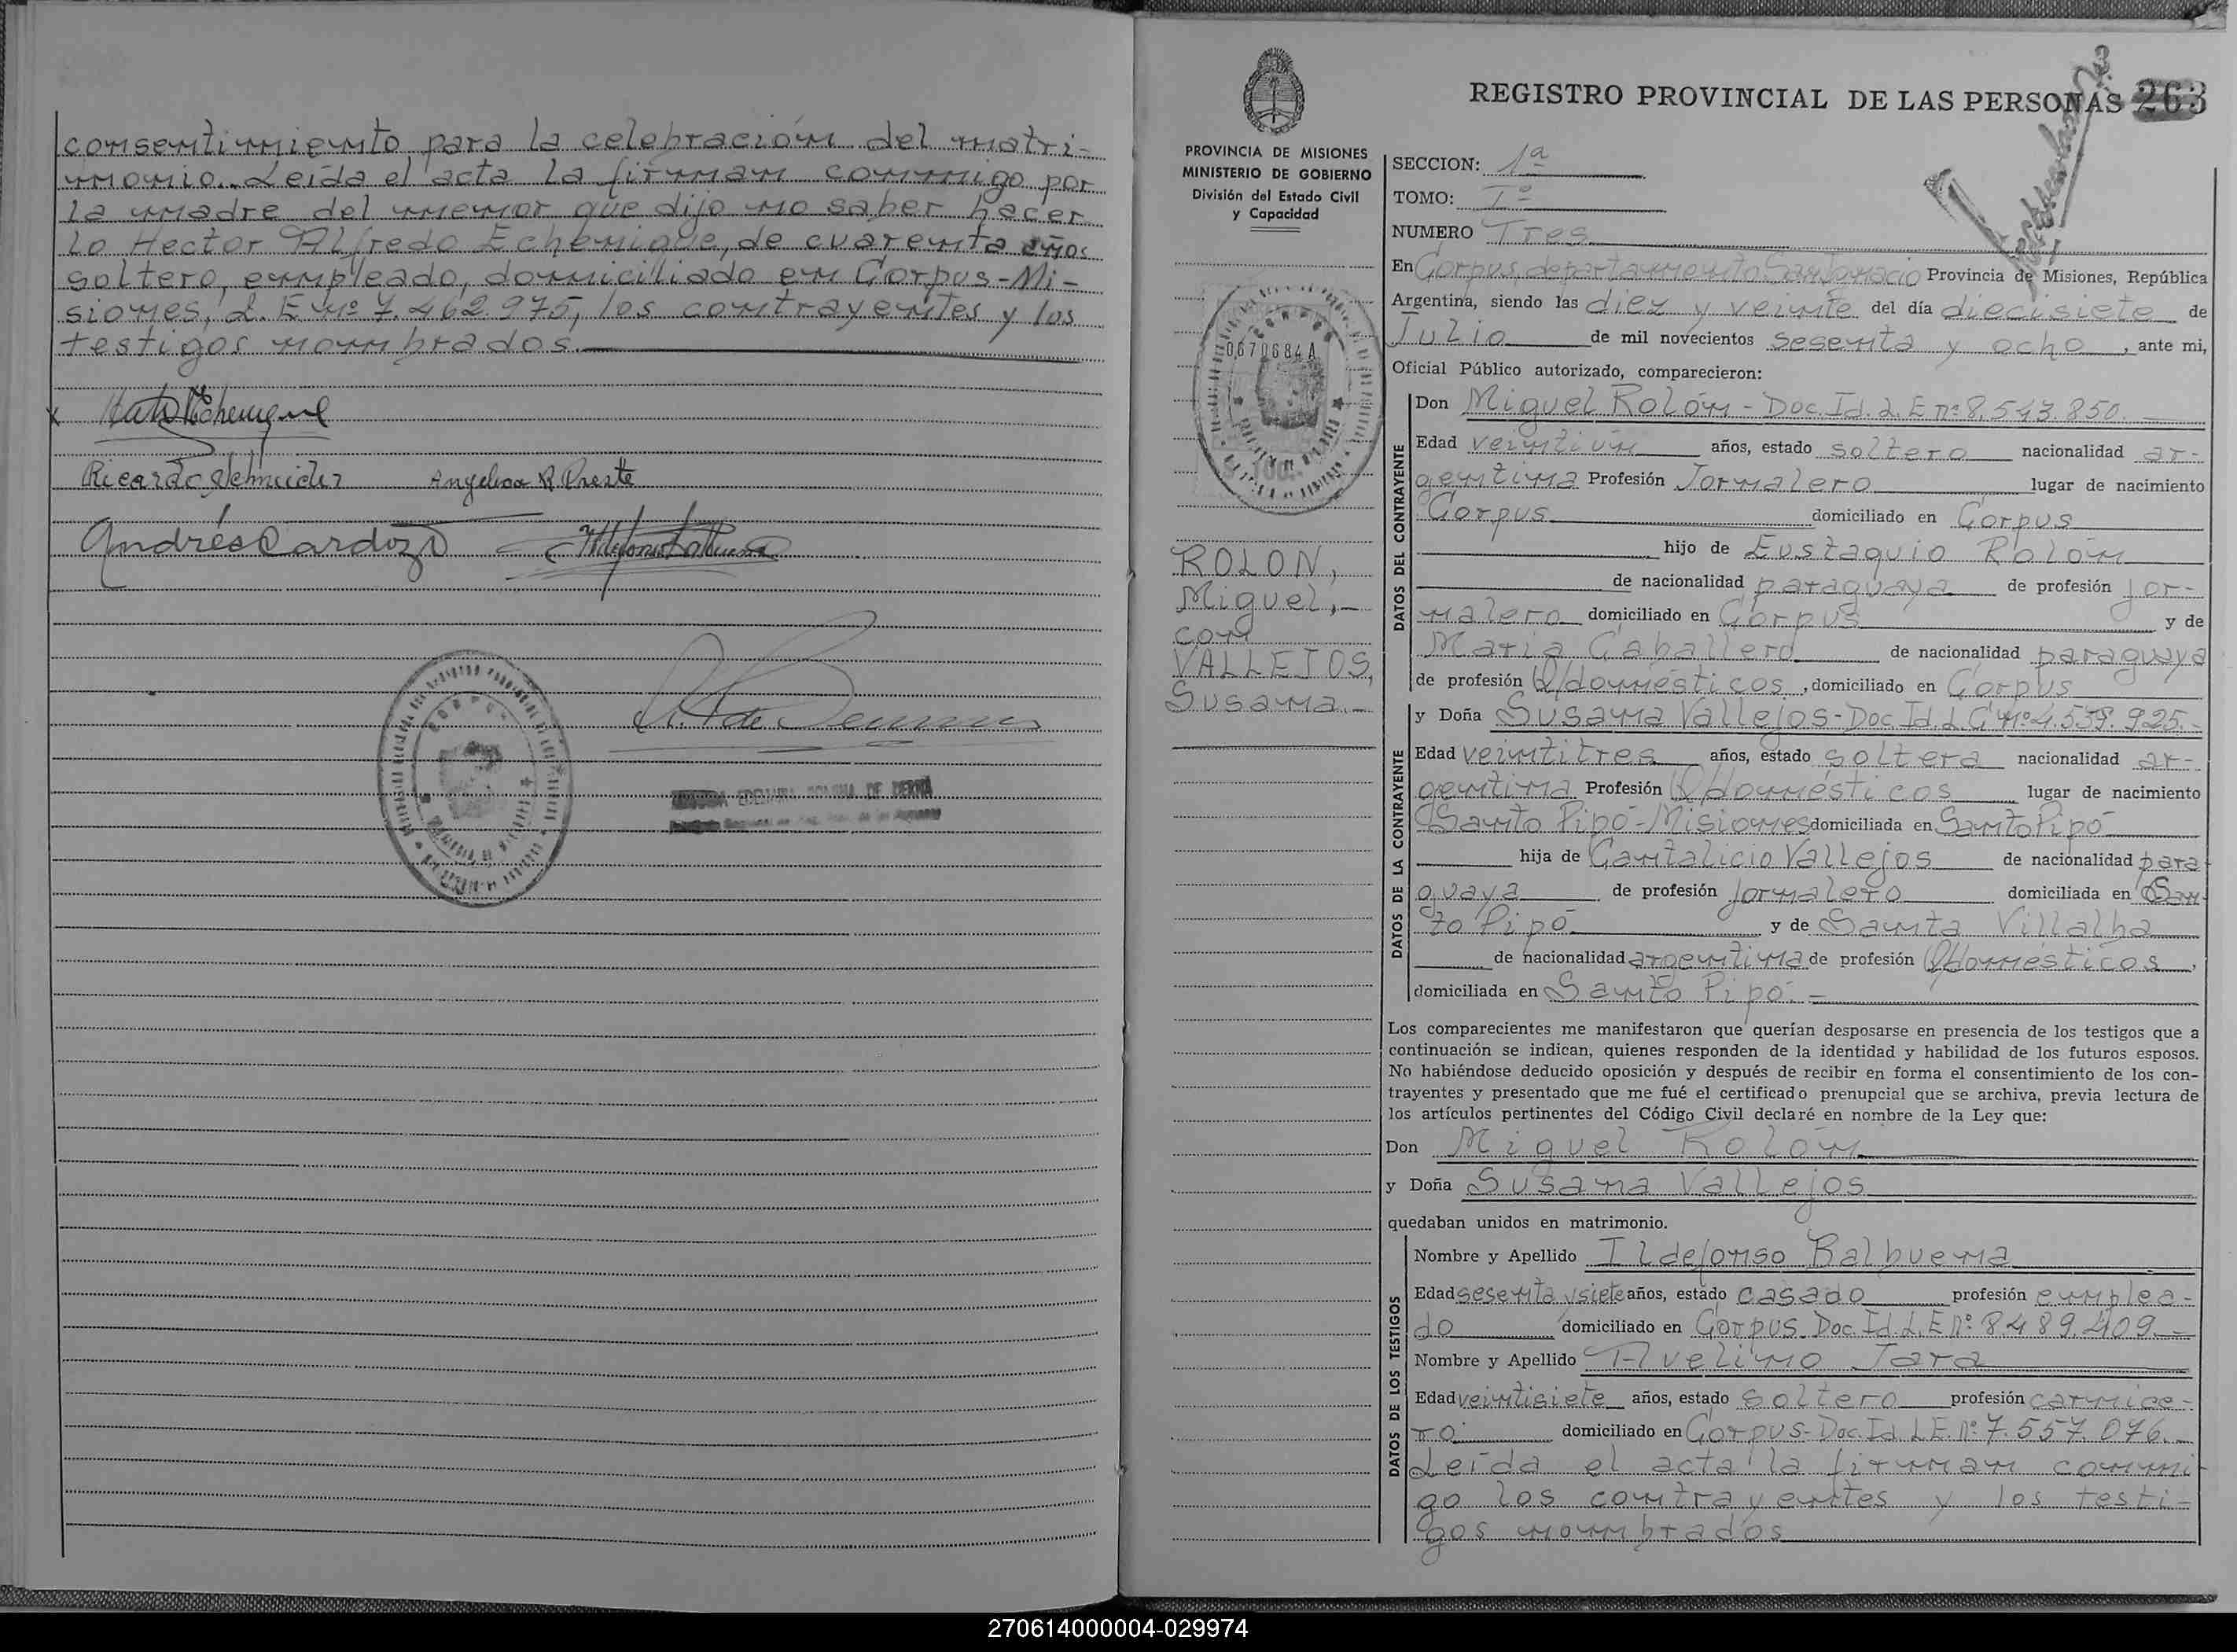 consentimiento para la celebración del matri-
monio.. Leída el acta la firman conmigo por
la madre del menor que dijo no saber hacer
lo Hector Alfredo Echenique, de cuarenta años
soltero, empleado, domiciliado en Corpus-Mi-
siones, L. E nº 7.462.975, los contrayentes y los
testigos nombrados.
Ricardo Schneider Angelica R Preste
Andrés Cardozo
PROVINCIA DE MISIONES
MINISTERIO DE GOBIERNO
División del Estado Civil
y Capacidad
0670684A
ROLON,
Miguel,-
con
VALLEJOS,
Susana.-
REGISTRO PROVINCIAL DE LAS PERSONAS 263
SECCION: 1ª
TOMO: Iº
NUMERO Tres
En Corpus, departamento San Ignacio Provincia de Misiones, República
Argentina, siendo las diez y veinte del día diecisiete de
Julio de mil novecientos sesenta y ocho, ante mi,
Oficial Público autorizado, comparecieron:
DATOS DEL CONTRAYENTE
Don Miguel Rolón - Doc. Id. L. E nº 8.543.850.
Edad veintiún años, estado soltero nacionalidad ar-
gentina Profesión Jornalero lugar de nacimiento
Corpus domiciliado en Corpus
hijo de Eustaquio Rolón
de nacionalidad paraguaya de profesión jor-
nalero domiciliado en Corpus y de
María Caballero de nacionalidad paraguaya
de profesión Q/domésticos, domiciliado en Corpus
DATOS DE LA CONTRAYENTE
y Doña Susana Vallejos-Doc. Id. L C nº 4.539.925.-
Edad veintitres años, estado soltera nacionalidad ar-
gentina Profesión Q/domésticos lugar de nacimiento
Santo Pipó-Misiones domiciliada en Santo Pipó
hija de Cantalicio Vallejos de nacionalidad para
guaya de profesión jornalero domiciliada en San-
to Pipó y de Santa Villalba
de nacionalidad argentina de profesión Q/domésticos,
domiciliada en Santo Pipó.-
Los comparecientes me manifestaron que querían desposarse en presencia de los testigos que a
continuación se indican, quienes responden de la identidad y habilidad de los futuros esposos.
No habiéndose deducido oposición y después de recibir en forma el consentimiento de los con-
trayentes y presentado que me fué el certificado prenupcial que se archiva, previa lectura de
los artículos pertinentes del Código Civil declaré en nombre de la Ley que:
Don Miguel Rolón
y Doña Susana Vallejos
quedaban unidos en matrimonio.
DATOS DE LOS TESTIGOS
Nombre y Apellido Ildefonso Balbuena
Edad sesenta y siete años, estado casado profesión emplea-
do domiciliado en Corpus. Doc. Id. L. E nº 8489.409.-
Nombre y Apellido Avelino Jara
Edad veintisiete años, estado soltero profesión carnice-
ro domiciliado en Corpus-Doc. Id L E. nº 7.557.076.-
Leída el acta la firman conmi
go los contrayentes y los testi-
gos nombrados
270614000004-029974